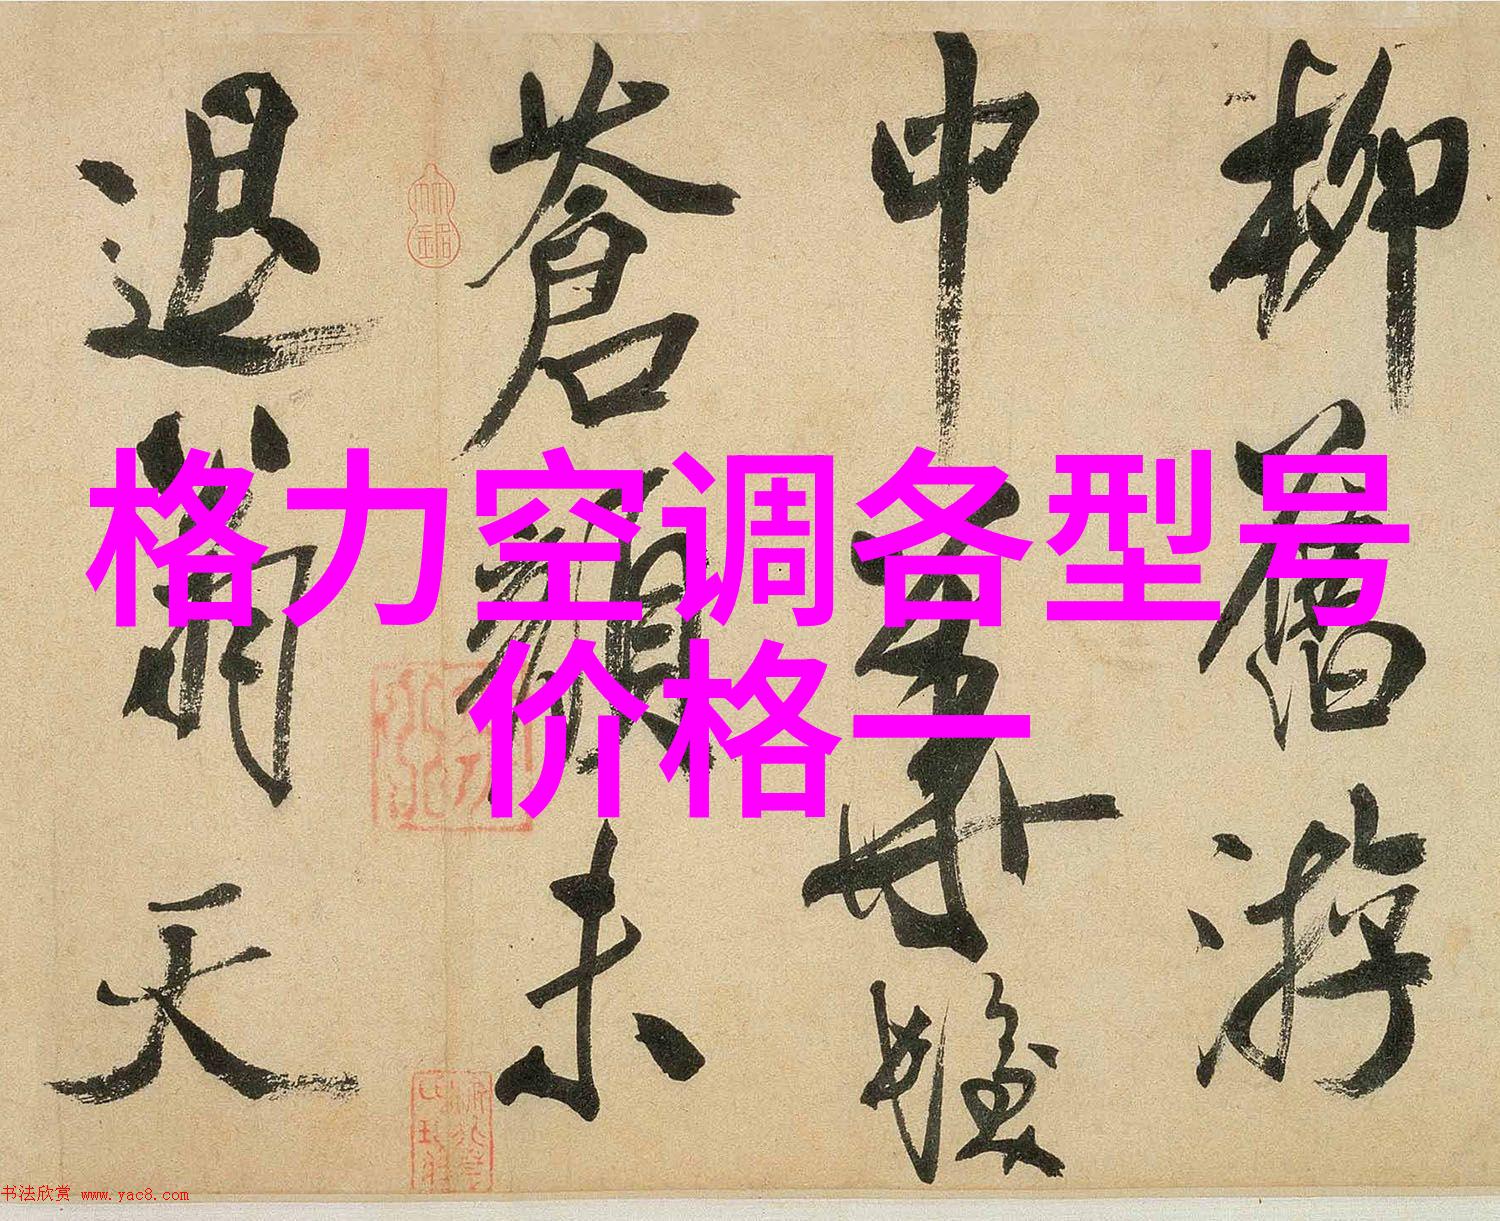 格力空调各型号
价格一
柳舊游
中
蒼顏未
退翁天
书法欣赏 www.yac8.com